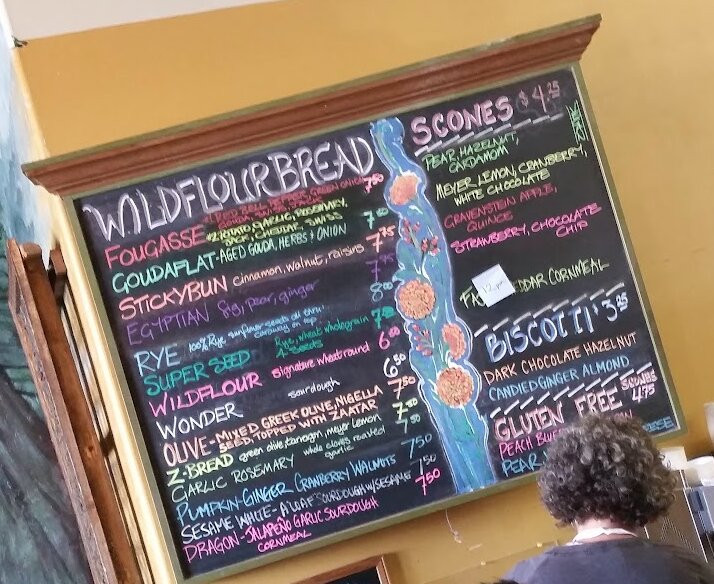 WILDFLOUR BREAD
FOUGASSE #1 RED BELL PEPPER, GREEN ONION, 7.50
GOUDA, SWISS, GARLIC
#2 POTATO, GARLIC, ROSEMARY,
JACK, CHEDDAR, SWISS
GOUDAFLAT - AGED GOUDA, HERBS & ONION
STICKYBUN cinnamon, walnut, raisins 7.75
EGYPTIAN fig, pear, ginger 7.75
RYE 100% Rye sunflour seeds all thru 8.00
caraway on top
SUPER SEED Rye, wheat wholegrain
4 seeds
WILDFLOUR signature wheat round 6.00
WONDER sourdough 6.50
OLIVE - MIXED GREEK OLIVE, NIGELLA 7.50
SEED, TOPPED WITH ZA'ATAR
Z-BREAD green olive, tarragon, meyer lemon
GARLIC ROSEMARY whole cloves roasted 7.50
garlic
PUMPKIN-GINGER CRANBERRY WALNUTS 7.50
SESAME WHITE - A LOAF SOURDOUGH W/SESAME 7.50
DRAGON - JALAPEÑO GARLIC SOURDOUGH 7.50
CORNMEAL
SCONES $4.25
PEAR, HAZELNUT,
CARDAMOM
MEYER LEMON, CRANBERRY,
WHITE CHOCOLATE
GRAVENSTEIN APPLE,
QUINCE
STRAWBERRY, CHOCOLATE
CHIP
CORNMEAL
BISCOTTI $3.25
DARK CHOCOLATE HAZELNUT
CANDIED GINGER ALMOND
GLUTEN FREE SCONES
4.75
PEACH
PEAR